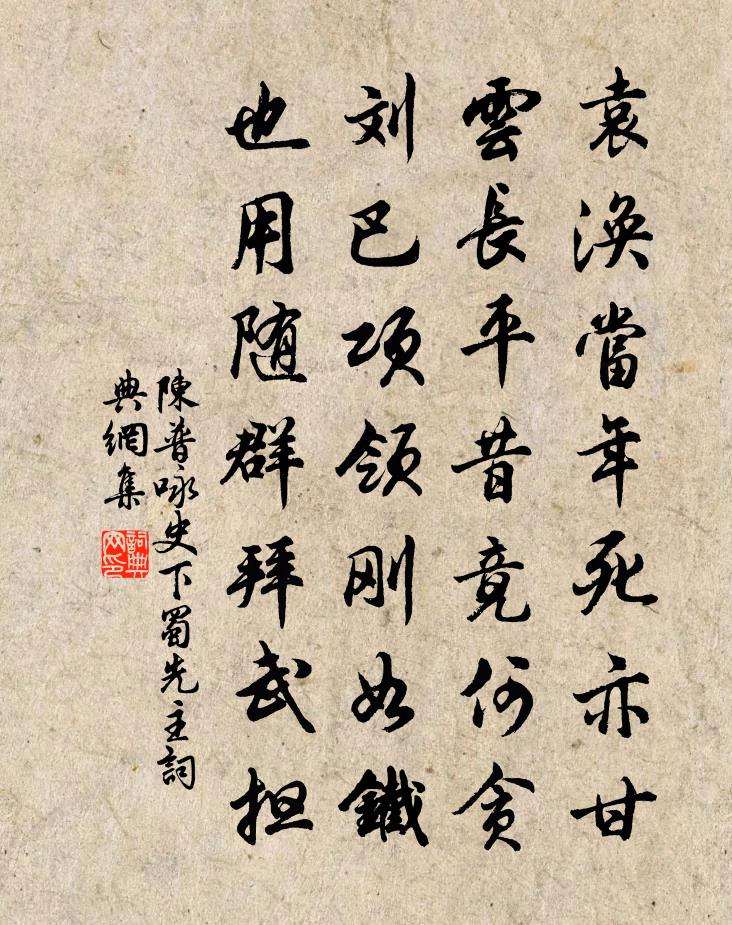 袁渙當年死亦甘
雲長平昔竟何貪
刘巴项领刚如鐵
也用随群拜武担
陳普咏史下蜀先主詞
典網集
詞典網印